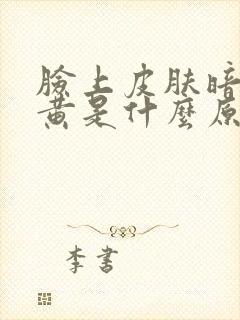 臉上皮肤暗
黄是什麼原
李書